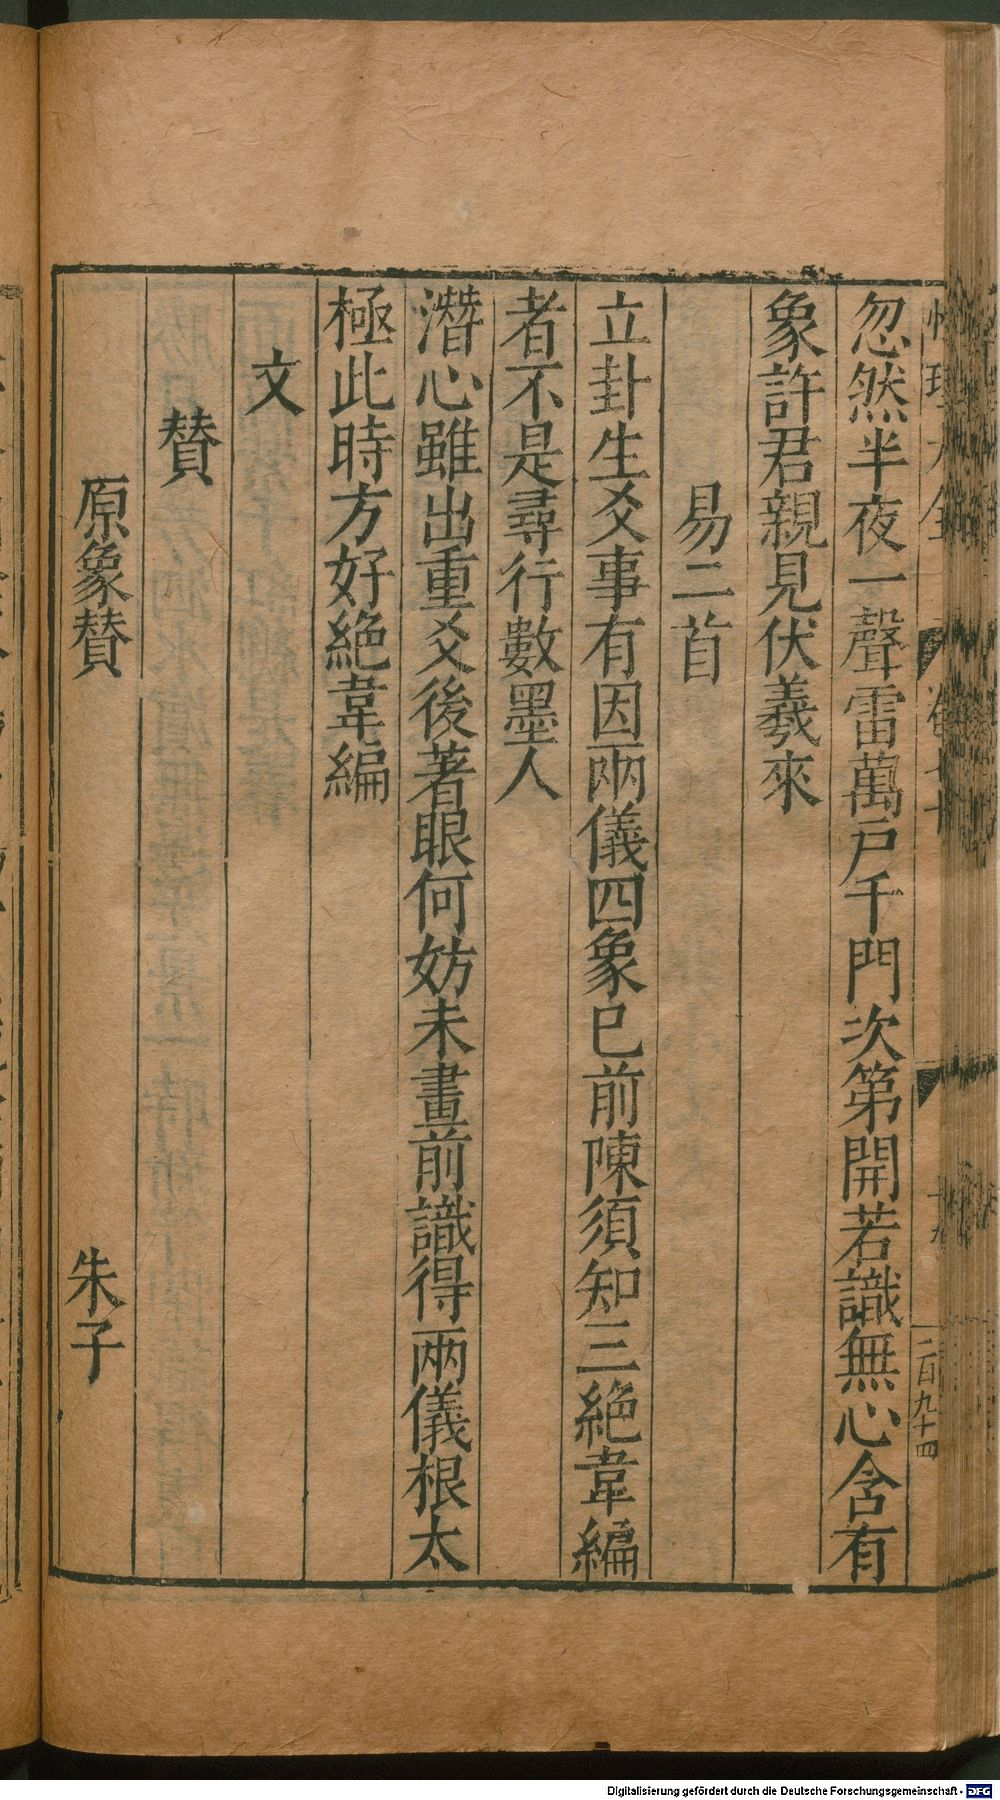 忽然半夜一聲雷萬戶千門次第開若識無心含有
象許君親見伏羲來
易二首
立卦生爻事有因兩儀四象已前陳須知三絶韋編
者不是尋行數墨人
潛心雖出重爻後著眼何妨未畫前識得兩儀根太
極此時方好絶韋編
文
賛
原象賛 朱子
二百九十四
Digitalisierung gefördert durch die Deutsche Forschungsgemeinschaft - DFG